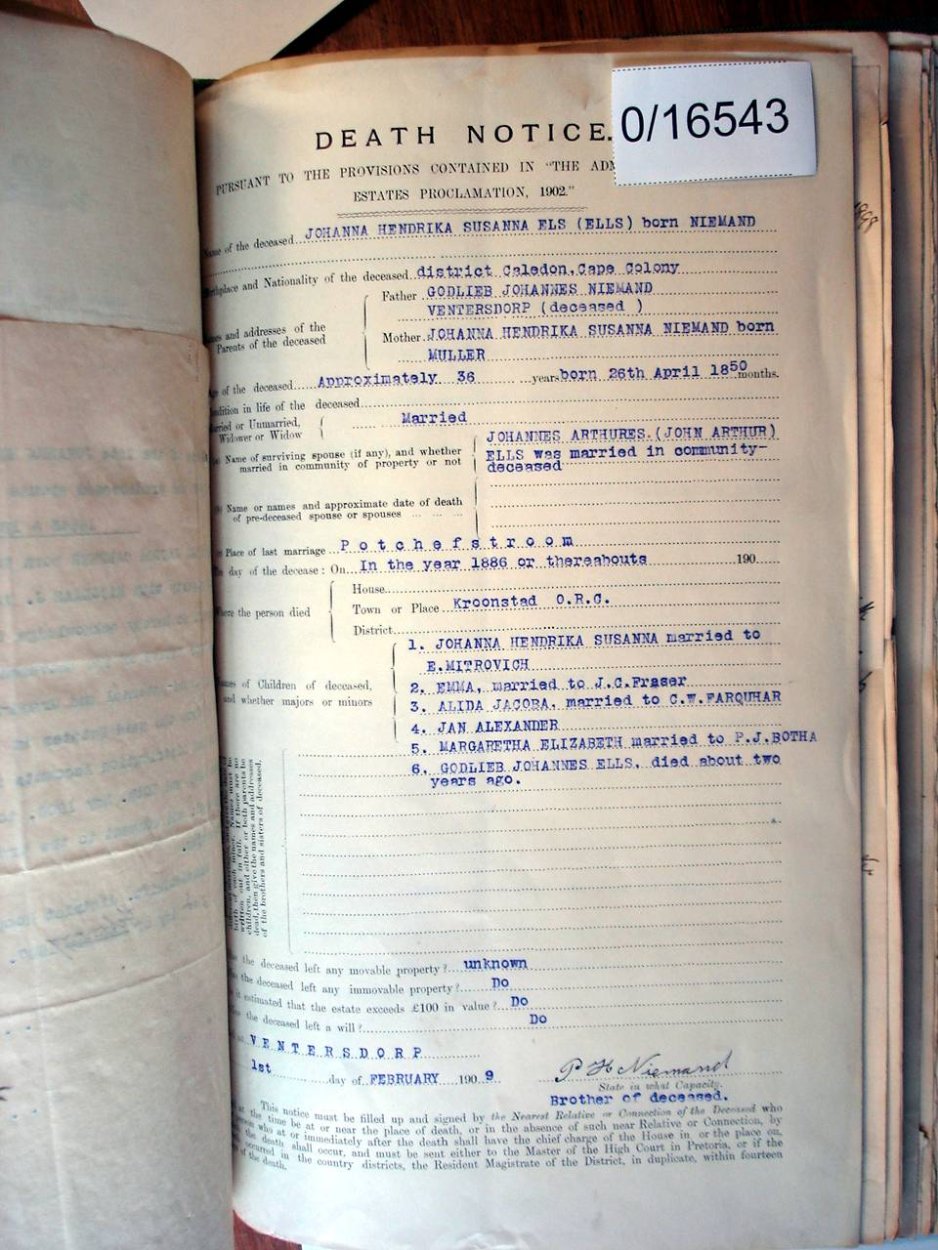 DEATH NOTICE.
0/16543
PURSUANT TO THE PROVISIONS CONTAINED IN "THE
ESTATES PROCLAMATION, 1902."
Name of the deceased JOHANNA HENDRIKA SUSANNA ELS (ELLS) born NIEMAND
Birthplace and Nationality of the deceased district Caledon, Cape Colony
Father GODLIEB JOHANNES NIEMAND
VENTERSDORP (deceased )
and addresses of the
Parents of the deceased
Mother JOHANNA HENDRIKA SUSANNA NIEMAND born
MULLER
of the deceased Approximately 36 years born 26th April 1850 months.
Condition in life of the deceased
Married or Unmarried,
Widower or Widow
Married
Name of surviving spouse (if any), and whether
married in community of property or not
JOHANNES ARTHURES.(JOHN ARTHUR)
ELLS was married in community-
deceased
Name or names and approximate date of death
of pre-deceased spouse or spouses
Place of last marriage Potchefstroom
day of the decease: On In the year 1886 or thereabouts 190
Where the person died
House
Town or Place Kroonstad O.R.C.
District
Names of Children of deceased,
and whether majors or minors
1. JOHANNA HENDRIKA SUSANNA married to
E.MITROVICH
2. EMMA, married to J.C.Fraser
3. ALIDA JACOBA, married to C.W.FARQUHAR
4. JAN ALEXANDER
5. MARGARETHA ELIZABETH married to P.J.BOTHA
6. GODLIEB JOHANNES ELLS, died about two
years ago.
birth of each minor. Names must be
written out in full. If there are no
children, and either or both parents be
dead, then give the names and addresses
of the brothers and sisters of deceased.
the deceased left any movable property? unknown
the deceased left any immovable property? Do
estimated that the estate exceeds £100 in value? Do
the deceased left a will? Do
VENTERSDORP
1st day of FEBRUARY 1909
P H Niemand
State in what Capacity.
Brother of deceased.
This notice must be filled up and signed by the Nearest Relative or Connection of the Deceased who
the time be at or near the place of death, or in the absence of such near Relative or Connection, by
who at or immediately after the death shall have the chief charge of the House in or the place on
the death shall occur, and must be sent either to the Master of the High Court in Pretoria, or if the
occurred in the country districts, the Resident Magistrate of the District, in duplicate, within fourteen
of the death.